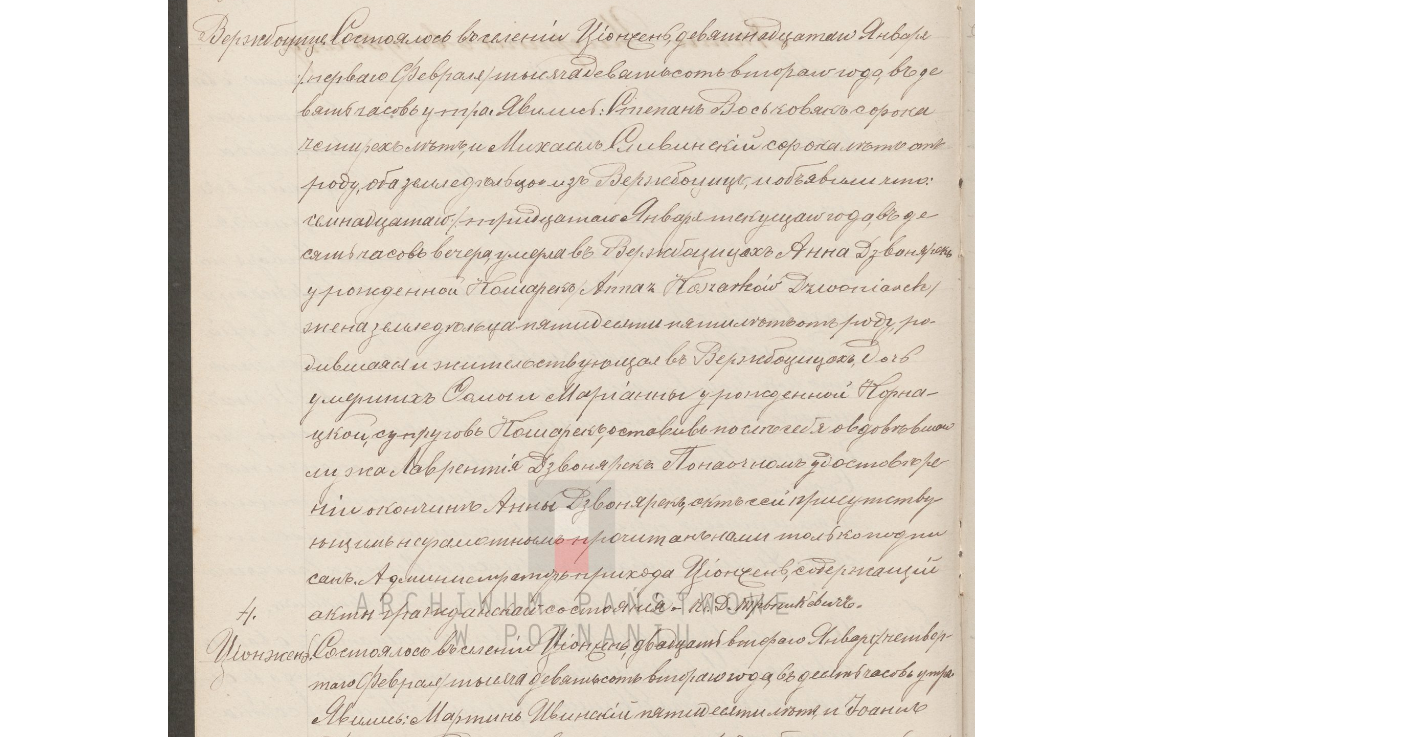 Вержбоцице Состоялось въ селеніи Ціонжень, девятнадцатаго Января
/перваго Февраля/ тысяча девятьсотъ втораго года, въ де
вять часовъ утра. Явились: Степанъ Воськовякъ сорока
четырехъ лѣтъ, и Михаилъ Сливинскій сорока лѣтъ отъ
роду, оба земледѣльцы изъ Вержбоцицъ, и объявили что:
семнадцатаго /тридцатаго Января текущаго года, въ де
сять часовъ вечера умерла въ Вержбоцицахъ Анна Дзвонярекъ
урожденной Кошарекъ /Anna z Koszarków Dzwoniarek/
жена земледѣльца пятидесяти пяти лѣтъ отъ роду, ро-
дившаяся и жительствующая въ Вержбоцицахъ, дочь
умершихъ и Маріанны урожденной Корна-
цкой, супруговъ Кошарекъ, оставивъ послѣ себя овдовѣвшаго
мужа Лаврентія Дзвонярекъ. По наочномъ удостовѣре
ніи о кончинѣ Анны Дзвонярекъ, актъ сей присутству
ющимъ неграмотнымъ прочитанъ нами только подпи
санъ. Администраторъ прихода Ціонжень, содержащій
акты гражданскаго состоянія –
ARCHIWUM PAŃSTWOWE
W POZNANIU
4.
Ціонжень. Состоялось въ селеніи Ціонжень, двадцать втораго Января/четвер-
таго Февраля/ тысяча девятьсотъ втораго года, въ десять часовъ утра.
Явились: Мартинъ Ивинскій пятидесяти лѣтъ, и Іоаннъ